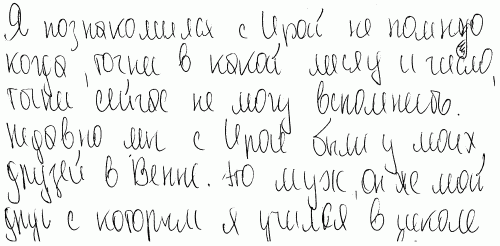 Я познакомился с Ирой не помню
когда, точно в какой месяц и число
точно сейчас не могу вспомнить.
недавно мы с Ирой были у моих
друзей в Вене. Её муж, он же мой
друг с которым я учился в школе